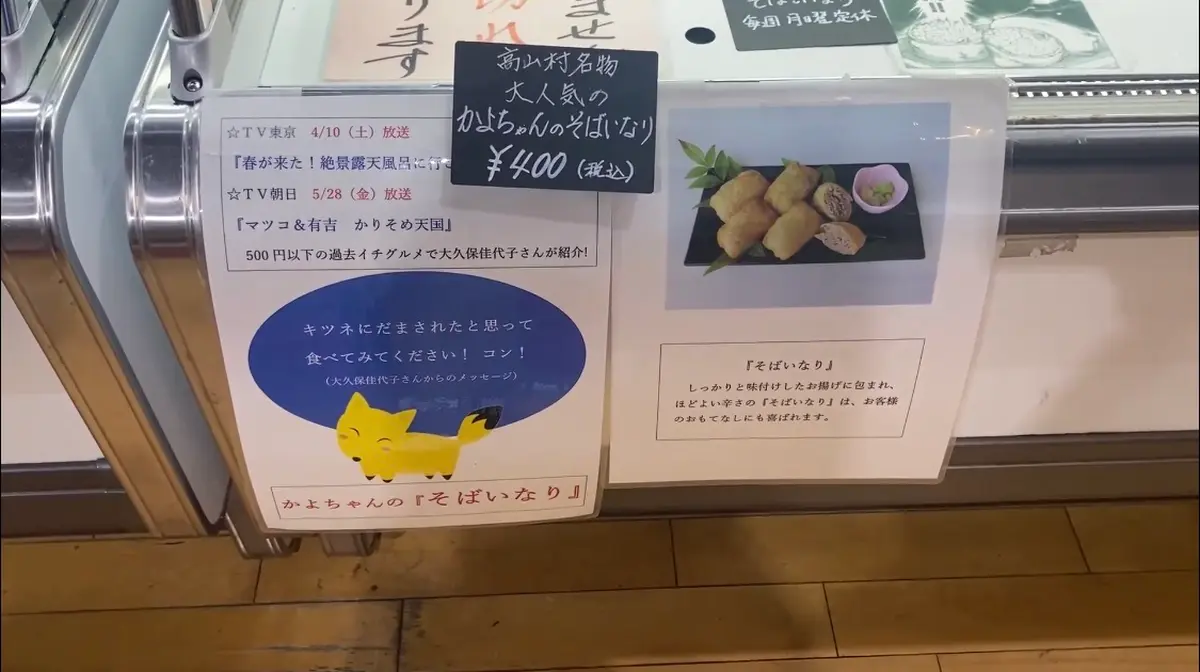 ります
切れ
ませ
そばいなり
毎週月曜定休
高山村名物
大人気の
かよちゃんのそばいなり
¥400(税込)
☆TV東京 4/10(土)放送
『春が来た!絶景露天風呂に行
☆TV朝日 5/28(金)放送
『マツコ&有吉 かりそめ天国』
500円以下の過去イチグルメで大久保佳代子さんが紹介!
キツネにだまされたと思って
食べてみてください! コン!
(大久保佳代子さんからのメッセージ)
かよちゃんの『そばいなり』
『そばいなり』
しっかりと味付けしたお揚げに包まれ、
ほどよい辛さの『そばいなり』は、お客様
のおもてなしにも喜ばれます。